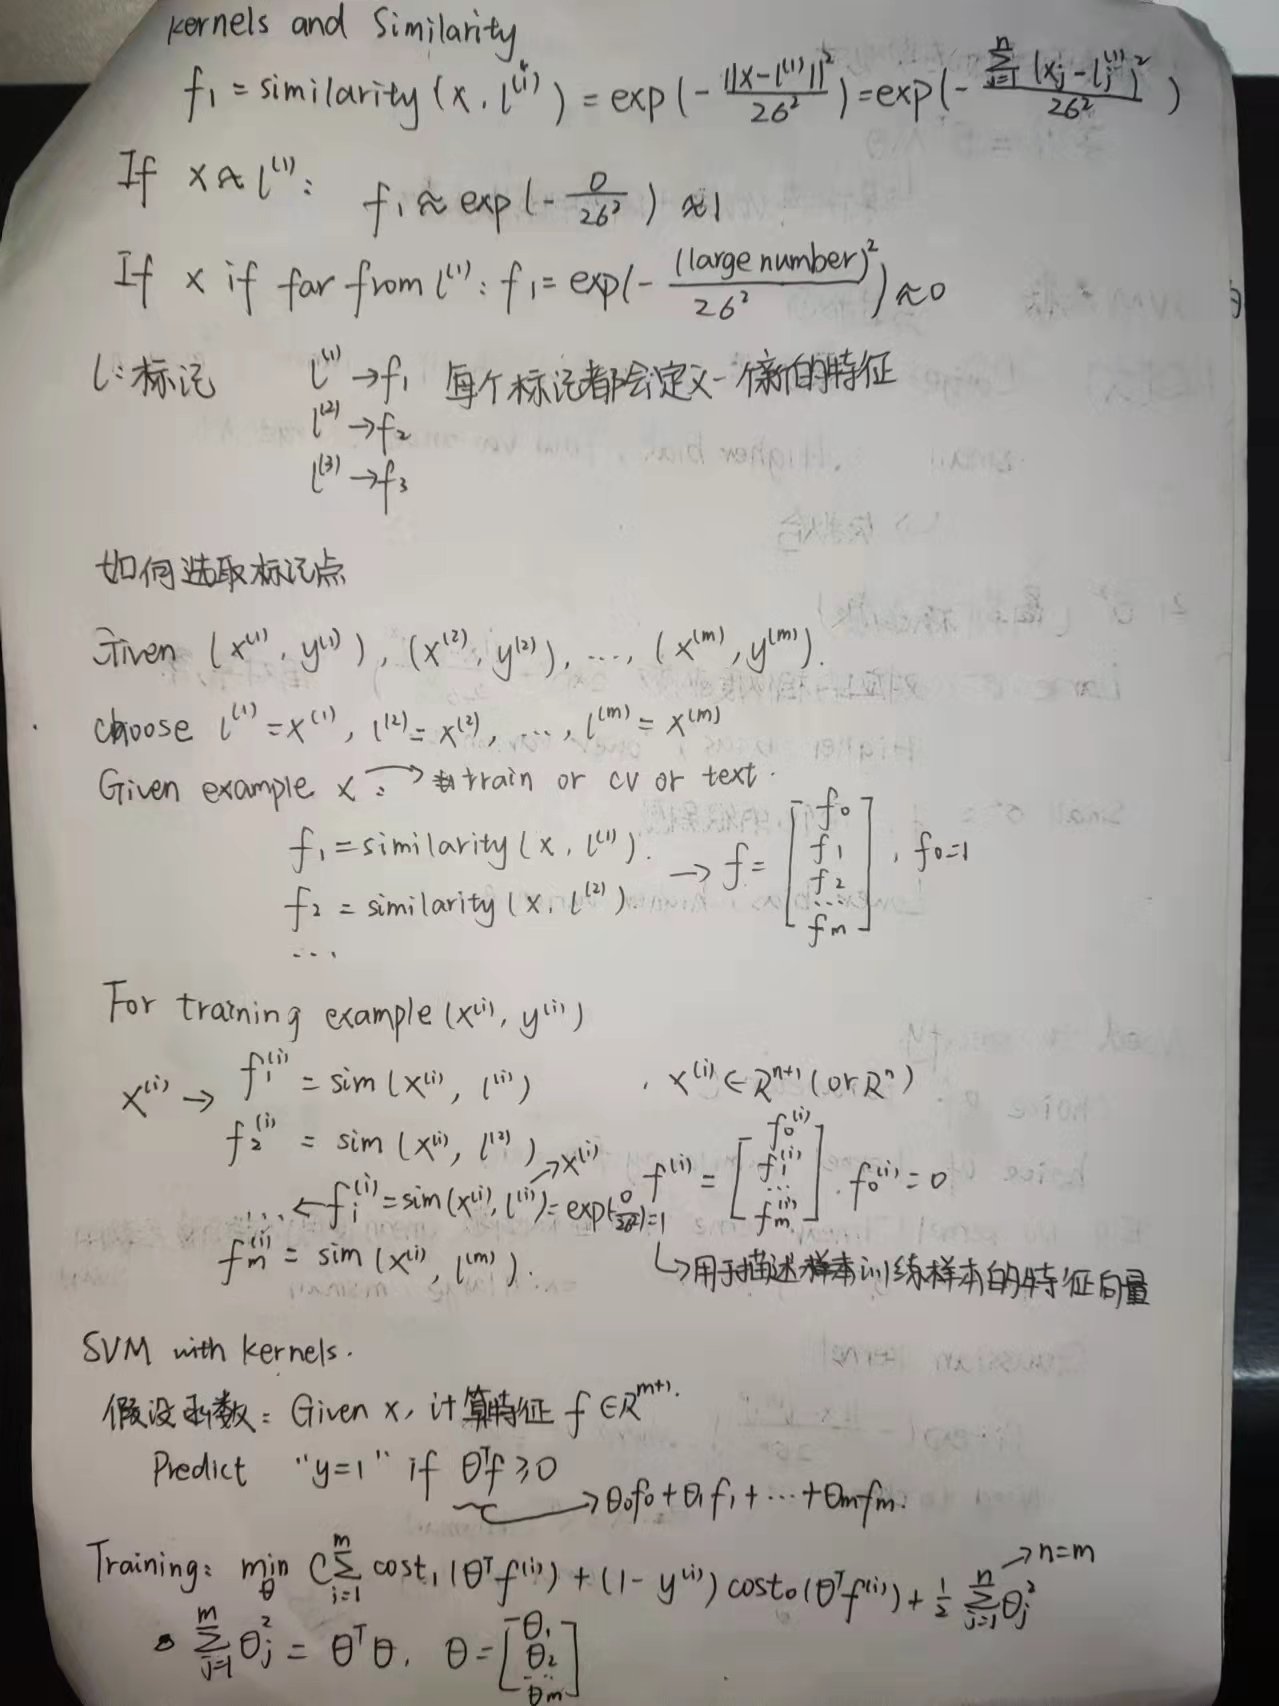 kernels and Similarity
f₁ = similarity (x, l⁽ⁱ⁾) = exp(-||x-l⁽¹⁾||²/2σ²) = exp(-∑ⱼ₌₁ⁿ(xⱼ-lⱼ⁽¹⁾)²/2σ²)
If x≈l⁽¹⁾: f₁≈exp(-0/2σ²) ≈1
If x if far from l⁽¹⁾: f₁=exp(-(large number)²/2σ²)≈0
l:标记 l⁽¹⁾→f₁ 每个标记都会定义一个新的特征
l⁽²⁾→f₂
l⁽³⁾→f₃
如何选取标记点
Given (x⁽¹⁾, y⁽¹⁾), (x⁽²⁾, y⁽²⁾), ..., (x⁽ᵐ⁾, y⁽ᵐ⁾).
choose l⁽¹⁾=x⁽¹⁾, l⁽²⁾=x⁽²⁾, ..., l⁽ᵐ⁾=x⁽ᵐ⁾
Given example x: → train or cv or text.
f₁=similarity(x, l⁽¹⁾). → f=[f₀ f₁ f₂ ... fₘ], f₀=1
f₂=similarity(x, l⁽²⁾)
...
For training example (x⁽ⁱ⁾, y⁽ⁱ⁾)
x⁽ⁱ⁾→ f₁⁽ⁱ⁾ = sim(x⁽ⁱ⁾, l⁽¹⁾) , x⁽ⁱ⁾∈Rⁿ⁺¹(or Rⁿ)
f₂⁽ⁱ⁾ = sim(x⁽ⁱ⁾, l⁽²⁾) →x⁽ⁱ⁾ f⁽ⁱ⁾=[f₀⁽ⁱ⁾ f₁⁽ⁱ⁾ ... fₘ⁽ⁱ⁾]. f₀⁽ⁱ⁾=0
...←fᵢ⁽ⁱ⁾=sim(x⁽ⁱ⁾, l⁽ⁱ⁾)=exp(-0/2σ²)=1
fₘ⁽ⁱ⁾ = sim(x⁽ⁱ⁾, l⁽ᵐ⁾). ↳用于描述训练样本的特征向量
SVM with kernels.
假设函数: Given x, 计算特征 f∈Rᵐ⁺¹.
Predict "y=1" if θᵀf≥0
→θ₀f₀+θ₁f₁+...+θₘfₘ.
Training: min_θ C∑ᵢ₌₁ᵐ cost₁(θᵀf⁽ⁱ⁾)+(1-y⁽ⁱ⁾)cost₀(θᵀf⁽ⁱ⁾)+½∑ⱼ₌₁ⁿθⱼ² →n=m
∑ⱼ₌₁ᵐθⱼ² = θᵀθ, θ=[θ₁ θ₂ ... θₘ]